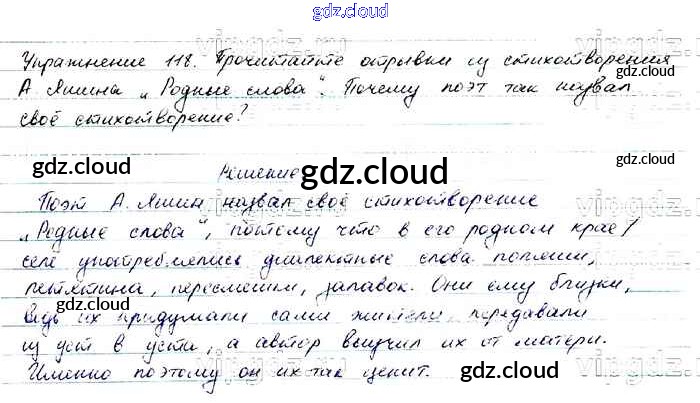 gdz.cloud
Упражнение 118. Прочитайте отрывки из стихотворения
А. Яшина „Родные слова“. Почему поэт так назвал
своё стихотворение?
gdz.cloud
gdz.cloud
gdz.cloud
gdz.cloud
Решение
Поэт А. Яшин назвал своё стихотворение
„Родные слова“, потому что в его родном крае/
селе употреблялись диалектные слова
gdz.cloud
пересмешки, запавок. Они ему близки,
gdz.cloud
ведь их придумали сами жители, передавали
из уст в уста, а автор выучил их от матери.
Именно поэтому он их так ценит.
gdz.cloud
gdz.cloud
gdz.cloud